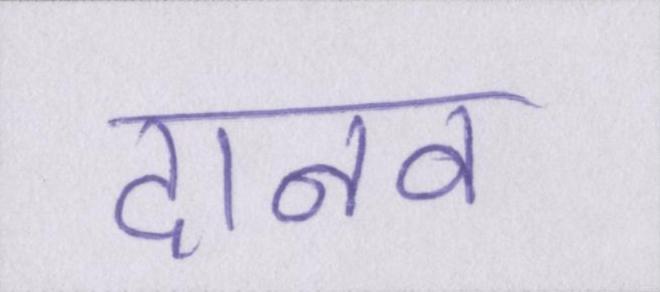 दानव